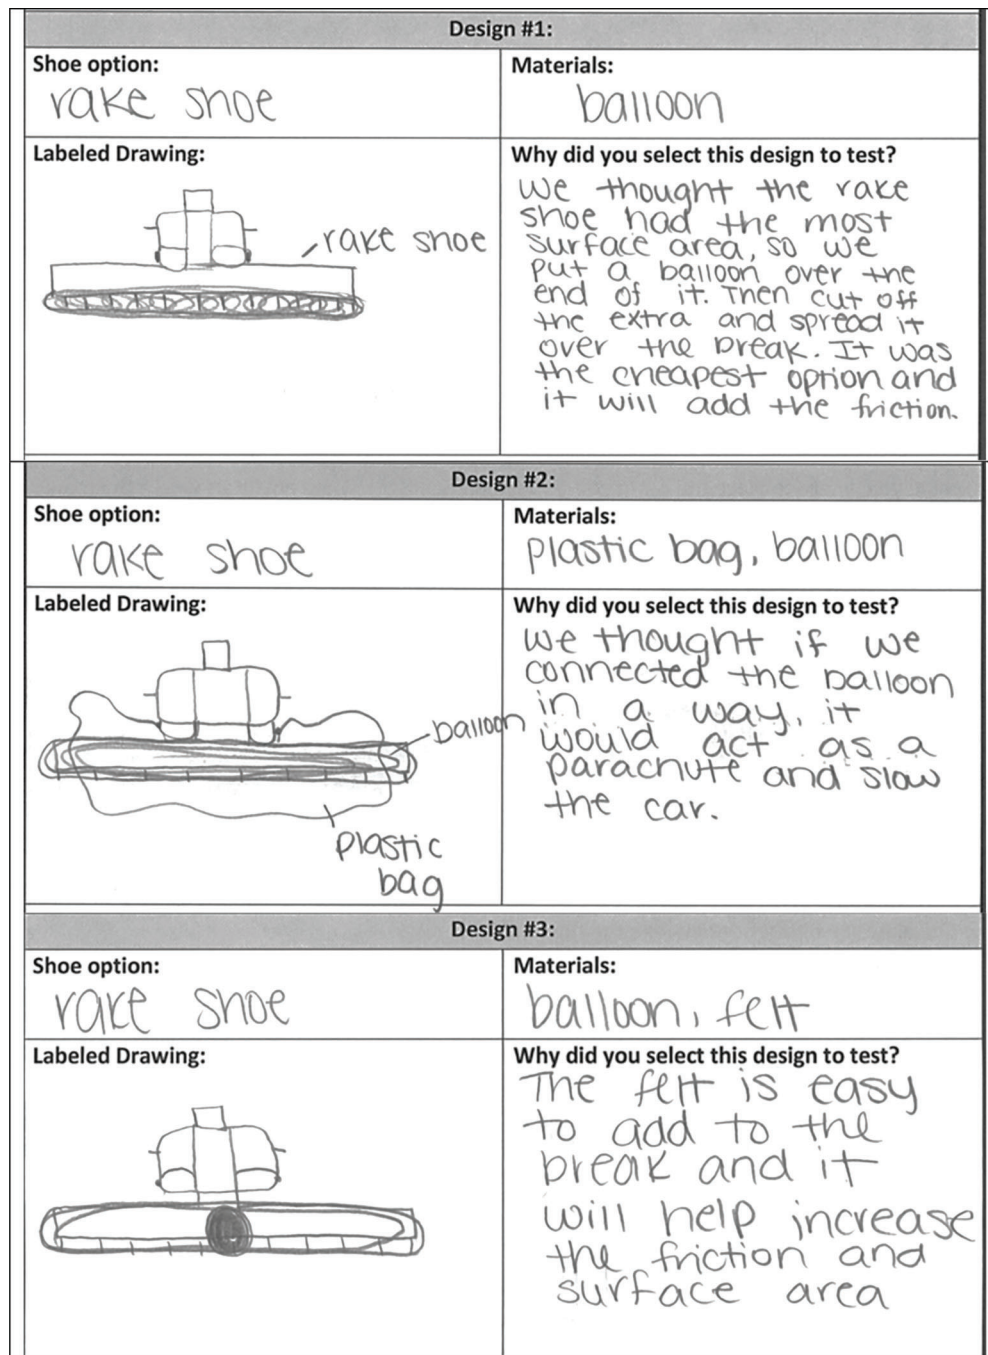 Design #1:
Shoe option:
rake shoe
Materials:
balloon
Labeled Drawing:
rake shoe
Why did you select this design to test?
we thought the rake
shoe had the most
surface area, so we
put a balloon over the
end of it. Then cut off
the extra and spread it
over the break. It was
the cheapest option and
it will add the friction.
Design #2:
Shoe option:
rake shoe
Materials:
plastic bag, balloon
Labeled Drawing:
balloon
plastic
bag
Why did you select this design to test?
we thought if we
connected the balloon
in a way, it
would act as a
parachute and slow
the car.
Design #3:
Shoe option:
rake shoe
Materials:
balloon, felt
Labeled Drawing:
Why did you select this design to test?
The felt is easy
to add to the
break and it
will help increase
the friction and
surface area